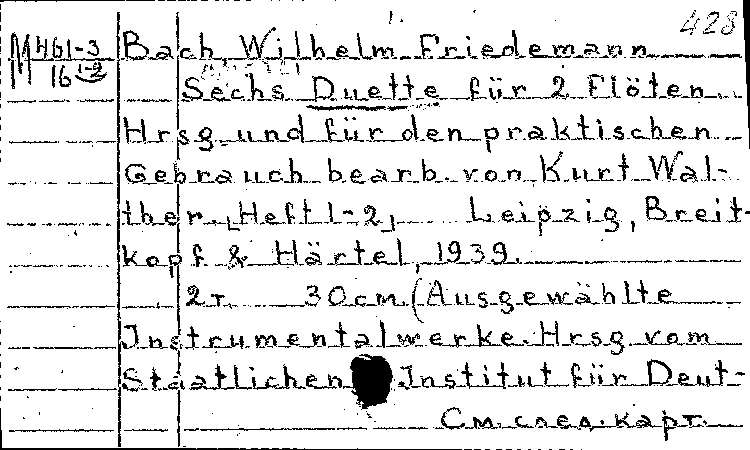 428
M 461-3 Bach, Wilhelm Friedemann
16 1-2 Sechs Duette für 2 Flöten.
Hrsg. und für den praktischen
Gebrauch bearb. von Kurt Wal-
ther. [Heft 1-2] Leipzig, Breit-
kopf & Härtel, 1939.
2т. 30см. (Ausgewählte
Instrumentalwerke. Hrsg. vom
Staatlichen Institut für Deut-
См. след. карт.